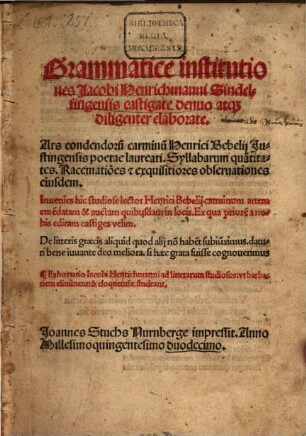 BIBLIOTHECA
REGIA
MONACENSIS
Grammatice institutio
nes Jacobi Henrichmanni Sindel-
fingensis castigate denuo atqʒ
diligenter elaborate.
Ars condendorū carminū Henrici Bebelij Ju-
stingensis poetae laureati. Syllabarum quātita-
tes. Racematiōes τ exquisitiores obseruationes
eiusdem.
Inuenies hic studiose lector Hērici Bebelij carminum artem
emēdatam & auctam quibusdam in locis. Ex qua priorē a no-
bis editam castiges velim.
De litteris græcis aliquid quod alij nō habēt subiūximus. daturi
bene iuuante deo meliora. si hæc grata fuisse cognouerimus
¶ Exhortatio Jacobi Henrichmanni ad litterarum studiosos vt barba-
riem eliminent & eloquentiæ studeant.
Joannes Stuchs Nurnberge impressit. Anno
Millesimoquingentesimo duodecimo.